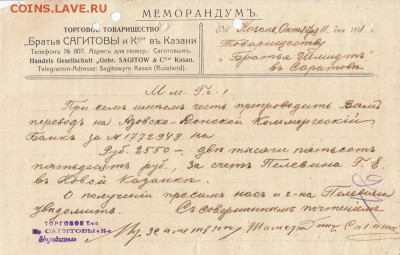 COINS.LAVE.RU
МЕМОРАНДУМЪ.
ТОРГОВОЕ ТОВАРИЩЕСТВО
„Братья САГИТОВЫ и Кнія“ въ Казани
Телефонъ № 807. Адресъ для телегр.: Сагитовымъ.
Handels Gesellschaft „Gebr. SAGITOW & Cnie Kasan.
Telegramm-Adresse: Sagitowym Kasan (Russland).
Казань, Октября 11 дня 191
Товариществу
Братья Шмидтъ
въ Саратовѣ
М. м. Г. г. !
При семъ имѣемъ честь препроводить Вамъ
переводъ на Азовско-Донской Коммерческій
Банкъ за № 1772948 на
Руб 2550 – двѣ тысячи пятьсотъ
пятьдесятъ руб., за счетъ Пелевина Г. Е.
въ Новой Казанкѣ.
О полученіи просимъ насъ и г-на Пелевина
увѣдомить. Съ совершеннымъ почтеніемъ
ТОРГОВОЕ Т-во
Бр. САГИТОВЫ и К-о
Учредитель